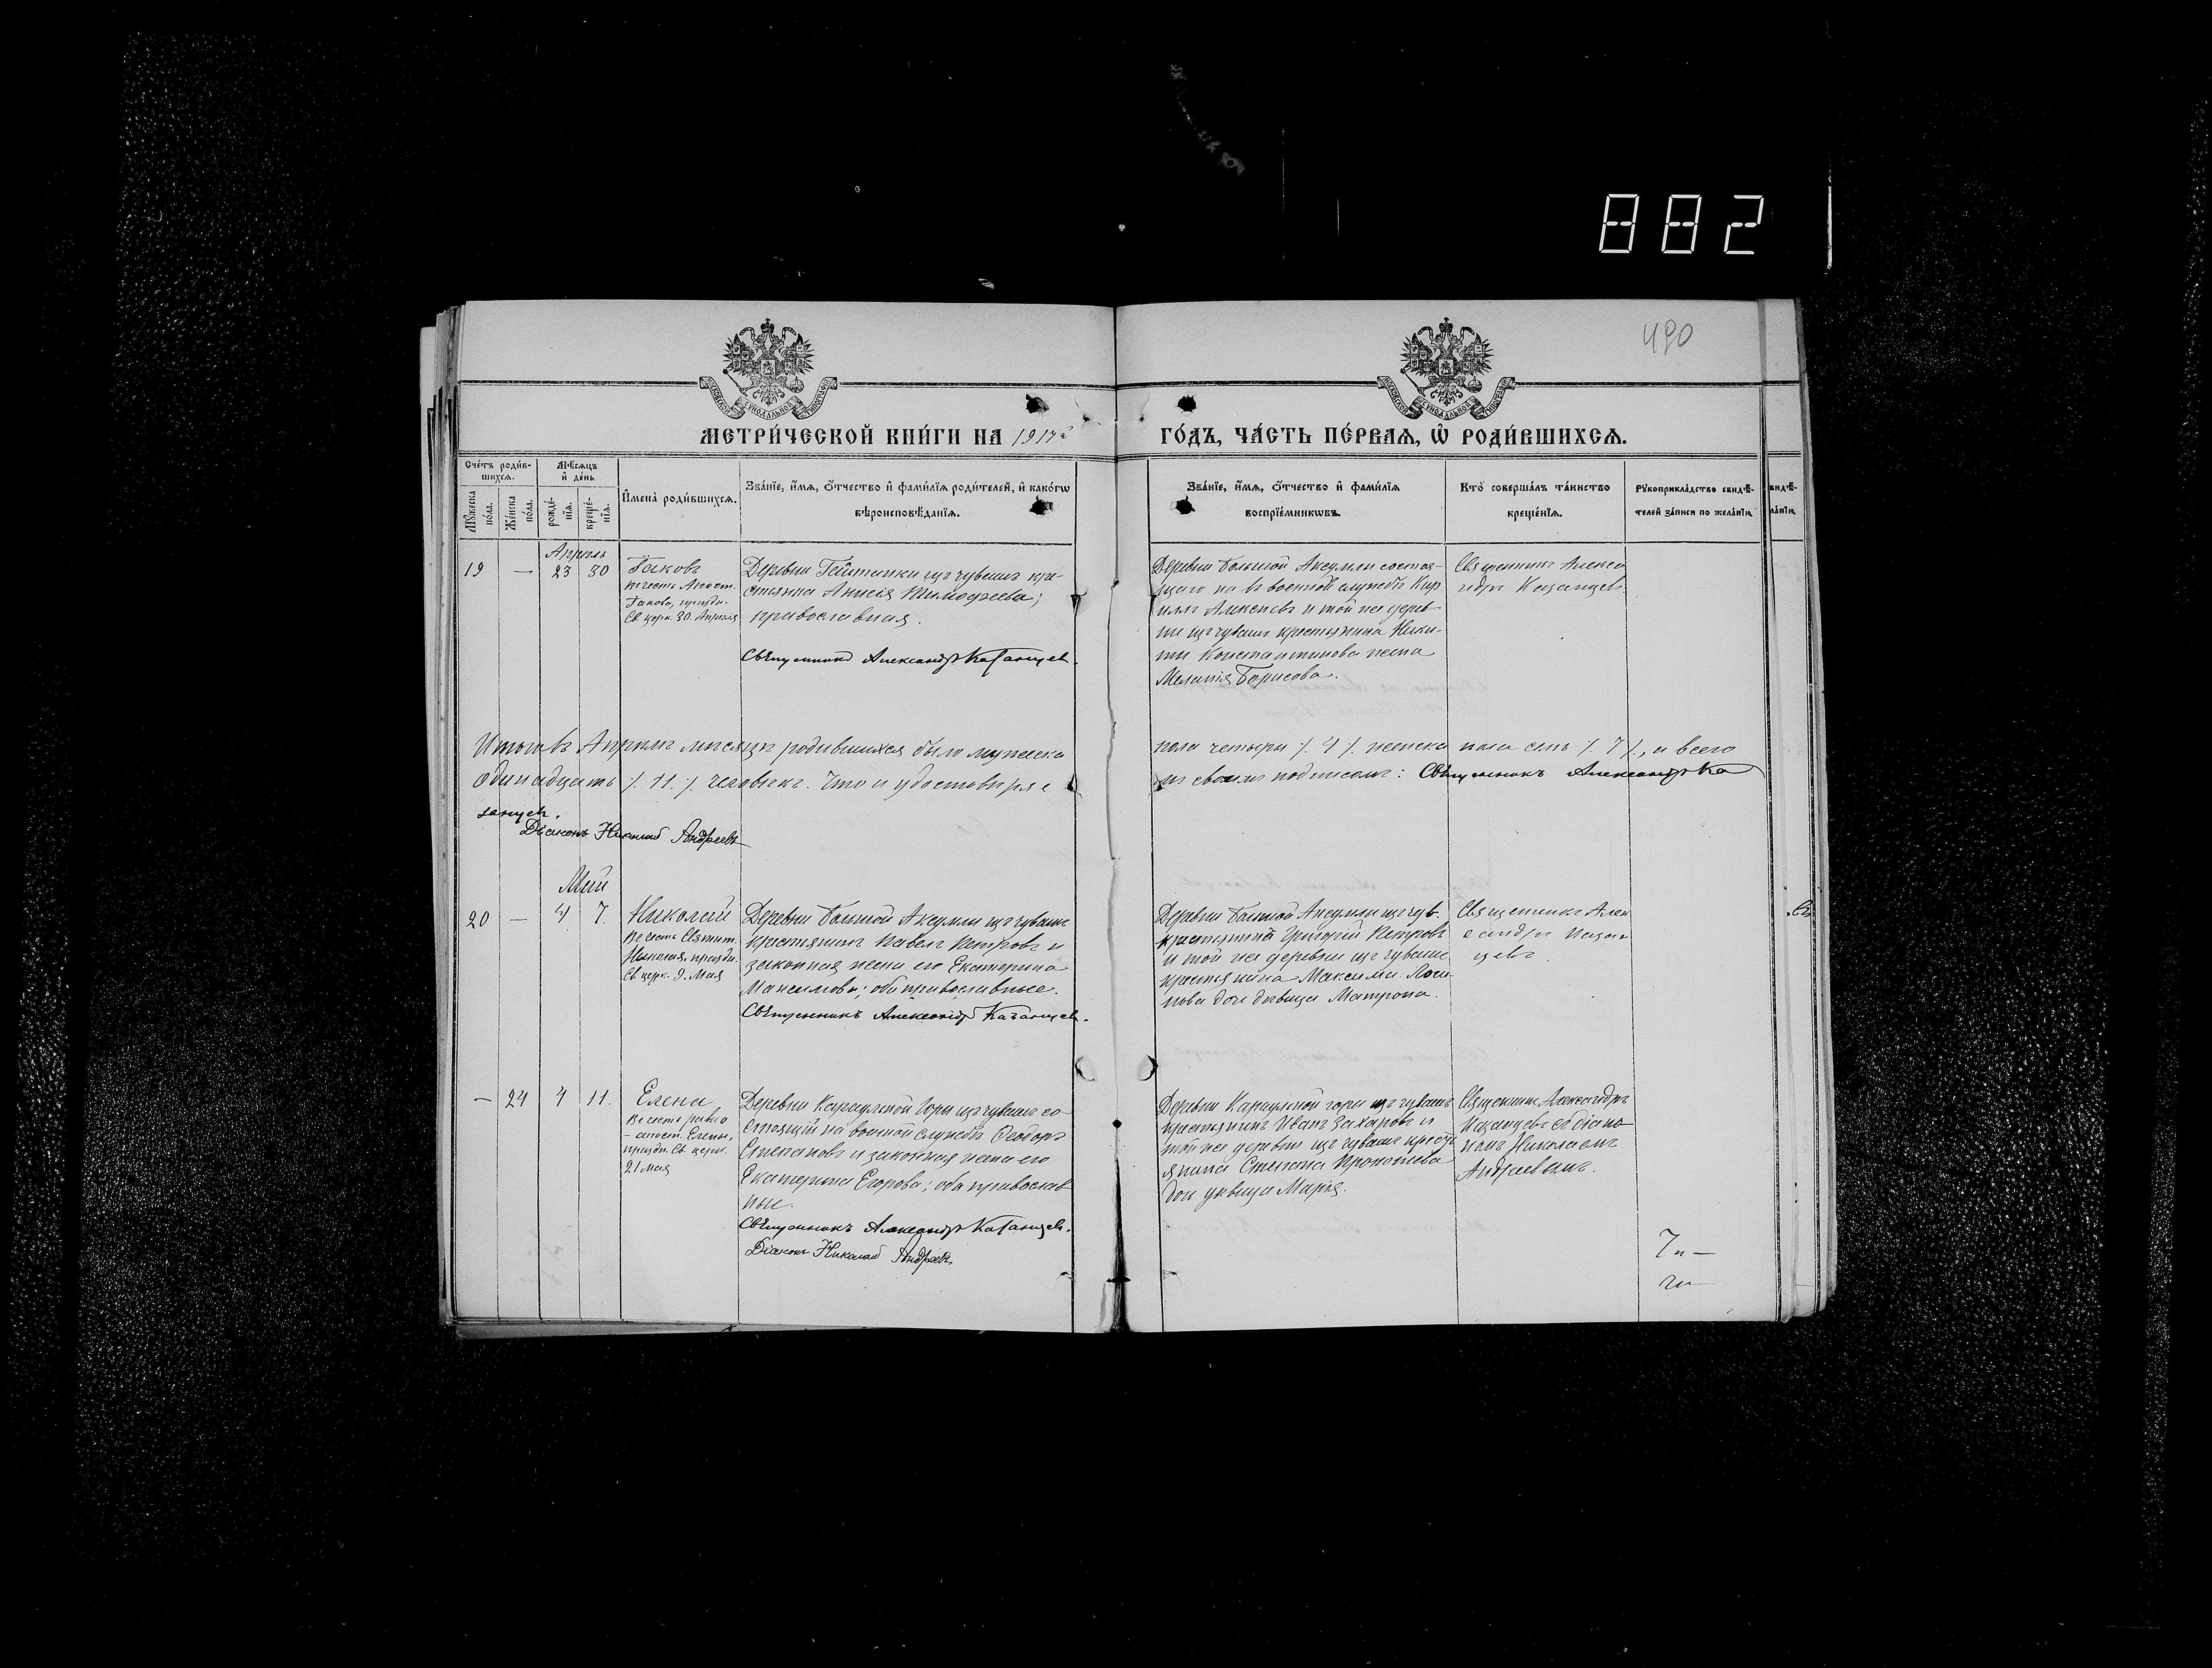 882
490
МЕТРИ́ЧЕСКОЙ КНИ́ГИ НА 1917й ГО́ДЪ, ЧА́СТЬ ПЕ́РВАѦ, Ѡ҆ РОДИ́ВШИХСѦ.
Сче́тъ роди́в-
шихсѧ.
Мѣ́сѧцъ
и҆ де́нь
Мꙋ́жеска по́ла.
Же́нска по́ла.
рожде́-
нїѧ.
креще́-
нїѧ.
И҆мена̀ роди́вшихсѧ.
Зва́нїе, и҆́мѧ, ѻ҆́тчество и҆ фами́лїѧ роди́телей, и҆ како́гѡ
вѣроисповѣ́данїѧ.
Зва́нїе, и҆́мѧ, ѻ҆́тчество и҆ фами́лїѧ
воспрїе́мникѡвъ.
Кто̀ соверша́лъ та́инство
креще́нїѧ.
Рꙋкоприкла́дство свидѣ́-
телей за́писи по жела́нїю.
Апрѣль
19 — 23 30
Іаковъ
въ честь Апост.
Іакова, праздн.
Св. церк. 30 Апрѣля
изъ чувашъ кре-
стьянка Анисія Тимоѳеева;
православная.
Священникъ Александръ Казанцевъ.
Деревни Большой Аксумлы состоя-
щаго на военной службѣ Кир
иллъ Алексѣевъ и той же дерев-
ни изъ чувашъ крестьянина Ники-
ты Константинова жена
Меланія Борисова.
Священникъ Алекса
ндръ Казанцевъ.
Итого въ Апрѣлѣ мѣсяцѣ родившихся было мужеска пола четыре /. 4 /. женска пола семь /. 7 /., и всего
одинадцать /. 11. /. человѣкъ. Что и удостовѣряе мъ своимъ подписомъ: Священникъ Александръ Ка
занцевъ.
Діаконъ Николай Андреевъ
Май
20 — 4 7.
Николай
Въ честь Святит.
Николая, праздн.
Св. церк. 9. Мая
Деревни Большой Аксумлы изъ чувашъ
крестьянинъ Павелъ Петровъ и
законная жена его Екатерина
Максимова; оба православные.
Священникъ Александръ Казанцевъ.
Деревни Большой Аксумлы изъ чув.
крестьянинъ Григорій Петровъ
и той же деревни изъ чувашъ
крестьянина Максима
дочь дѣвица Матрона.
Священникъ Алек
сандръ Казан
цевъ.
— 24 4 11.
Елена
Въ честь равно
-апост. Елены,
праздн. Св. церк.
21 Мая
Деревни Караульной Горы изъ чувашъ со-
стоящій на военной службѣ Ѳеодоръ
Степановъ и законная жена его
Екатерина Егорова; оба православ
ные.
Священникъ Александръ Казанцевъ.
Діаконъ Николай Андреевъ
Деревни Караульной горы изъ чувашъ
крестьянинъ Иванъ Захаровъ и
той же деревни изъ чувашъ крест
янина Степана Прокопьева
дочь дѣвица Марія.
Священникъ Александръ
Казанцевъ съ діако
номъ Николаемъ
Андреевымъ.